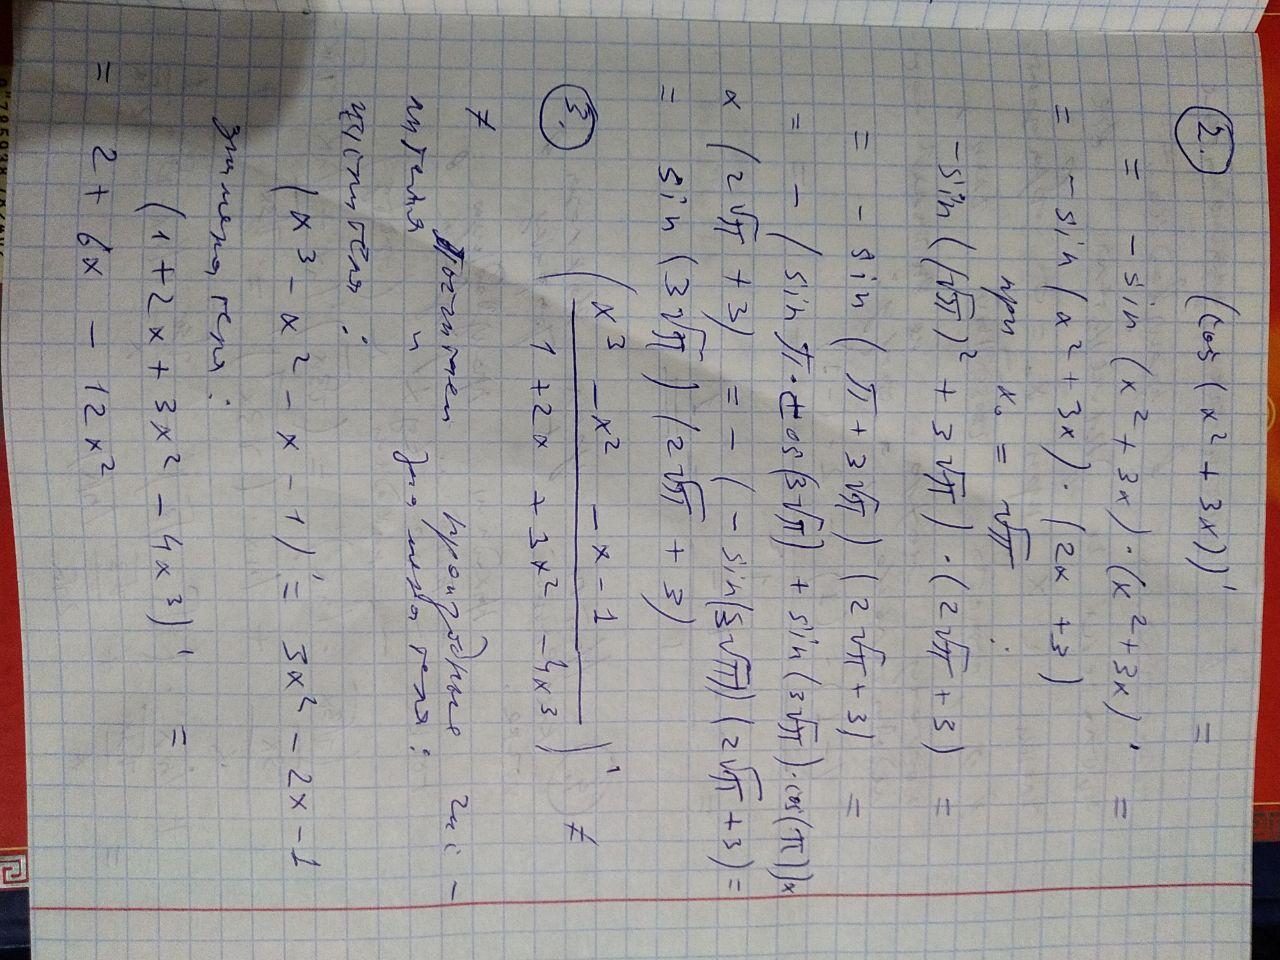 2. (cos (x² + 3x))' =
= - sin (x² + 3x) · (x² + 3x)' =
= - sin (x² + 3x) · (2x + 3)
при x₀ = √π :
- sin ((√π)² + 3√π) · (2√π + 3) =
= - sin (π + 3√π) (2√π + 3) =
= - (sin π · cos (3√π) + sin (3√π) · cos(π)) ×
× (2√π + 3) = - (- sin(3√π)) (2√π + 3) =
= sin (3√π) (2√π + 3)
3. ((x³ - x² - x - 1) / (1 + 2x + 3x² - 4x³))' ≠
≠
Посчитаем производные чис-
лителя и знаменателя:
числителя:
(x³ - x² - x - 1)' = 3x² - 2x - 1
знаменателя:
(1 + 2x + 3x² - 4x³)' =
= 2 + 6x - 12x²